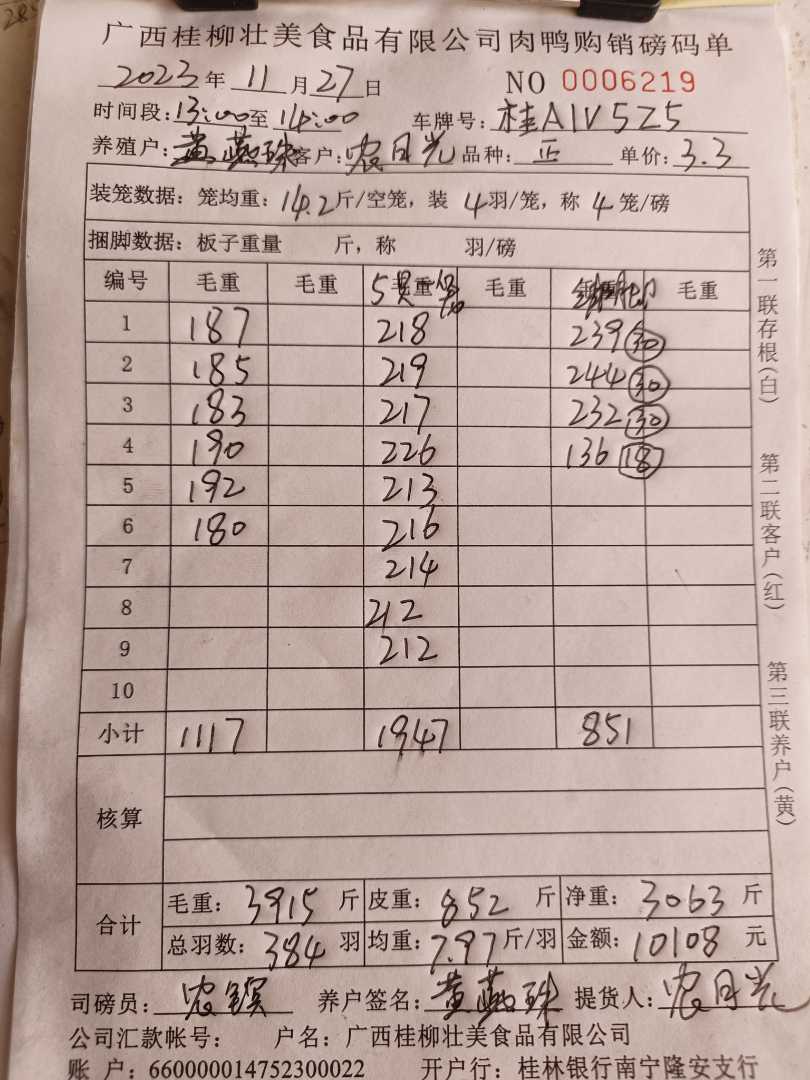 广西桂柳壮美食品有限公司肉鸭购销磅码单
2023年11月27日 NO 0006219
时间段:13:00至14:00 车牌号:桂A1V5Z5
养殖户:黄燕珠 客户:农月光 品种:正 单价:3.3
装笼数据:笼均重:14.2斤/空笼,装4羽/笼,称4笼/磅
捆脚数据:板子重量 斤,称 羽/磅
编号 毛重 毛重 毛重 毛重 毛重
1 187 218 239 30
2 185 219 244 30
3 183 217 232 30
4 190 226 136 18
5 192 213
6 180 216
7 214
8 212
9 212
10
小计 1117 1947 851
核算
合计 毛重:3915斤 皮重:852斤 净重:3063斤
总羽数:384羽 均重:7.97斤/羽 金额:10108元
司磅员: 养户签名:黄燕珠 提货人:农月光
公司汇款帐号: 户名:广西桂柳壮美食品有限公司
账 户:660000014752300022 开户行:桂林银行南宁隆安支行
第一联存根(白)
第二联客户(红)
第三联养户(黄)